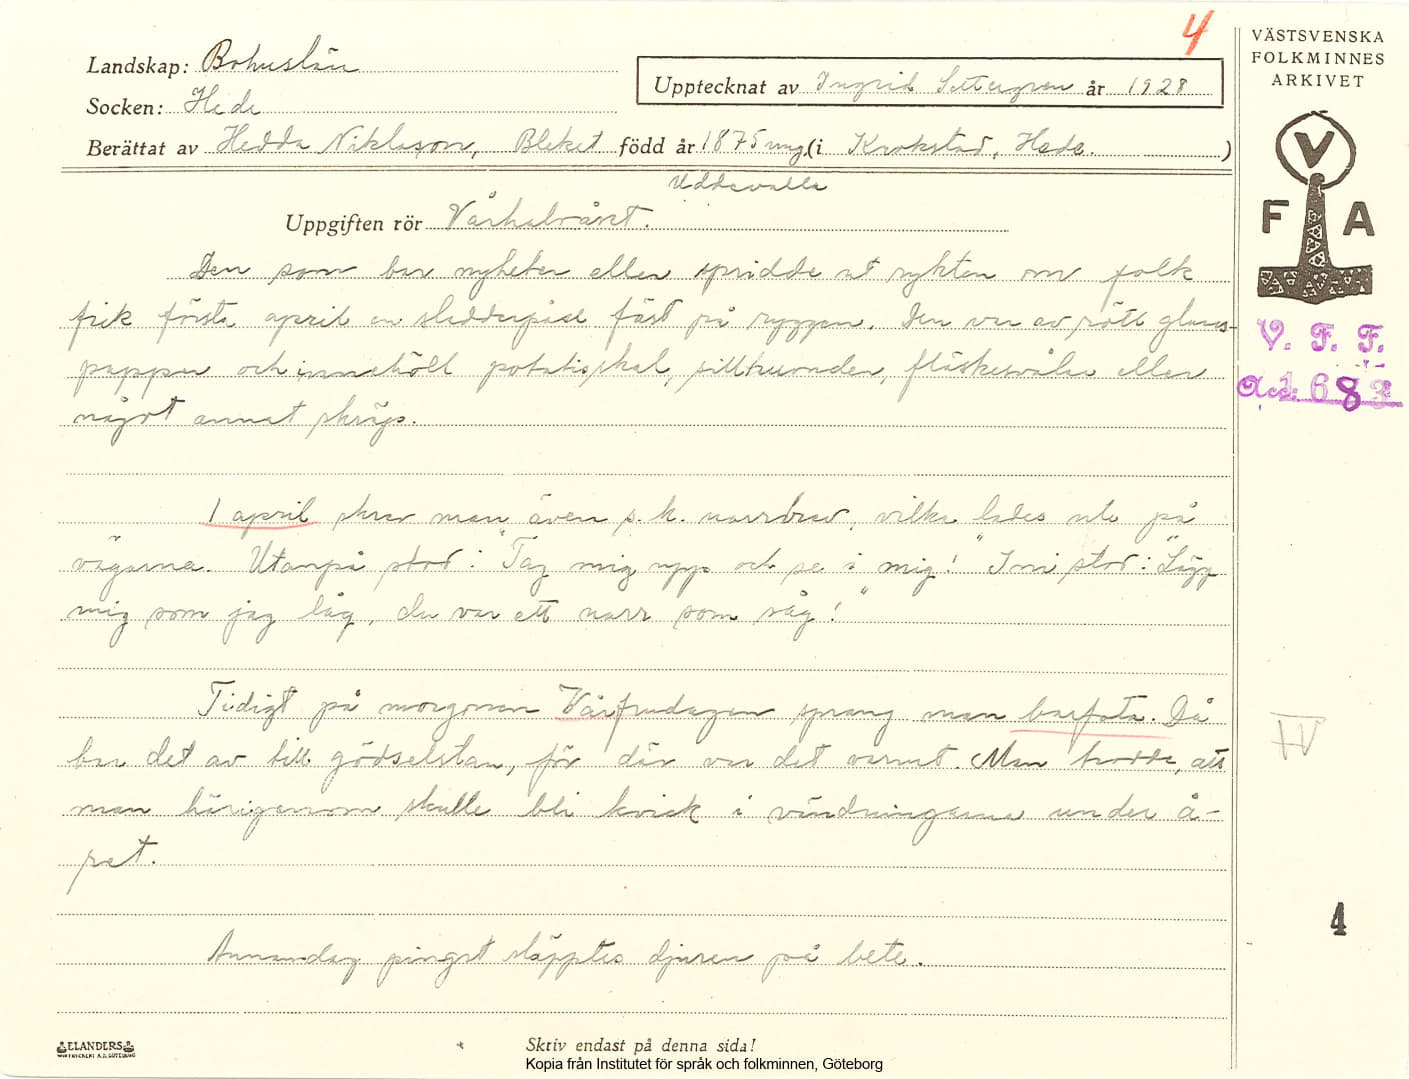 4
VÄSTSVENSKA
FOLKMINNES
ARKIVET
Landskap: Bohuslän
Upptecknat av Ingrid Settergren år 1928
Socken: Hede
Berättat av Hedda Niklasson, Bleket född år 1875 (i Krokstad, Hede. )
Uddevalla
V
F A
Uppgiften rör Vårhalvåret.
Den som bar nyheter eller spridde ut rykten om folk
fick första april en sladderpåse fäst på ryggen. Den var av rött glans-
papper och innehöll potatisskal, sillhuvuden, fläsksvålar eller
något annat skräp.
V. F. F.
Acc. 1683
1 april skrev man även s.k. narrbrev, vilka lades ute på
vägarna. Utanpå stod: "Tag mig upp och se i mig!" Inni stod: "Lägg
mig som jag låg, du var ett narr som såg!"
Tidigt på morgonen Vårfrudagen sprang man barfota. Då
bar det av till gödselstan, för där var det varmt. Man trodde, att
man härigenom skulle bli kvick i vändningarna under å-
ret.
IV
4
Annandag pingst släpptes djuren på bete.
ELANDERS
Skriv endast på denna sida!
Kopia från Institutet för språk och folkminnen, Göteborg